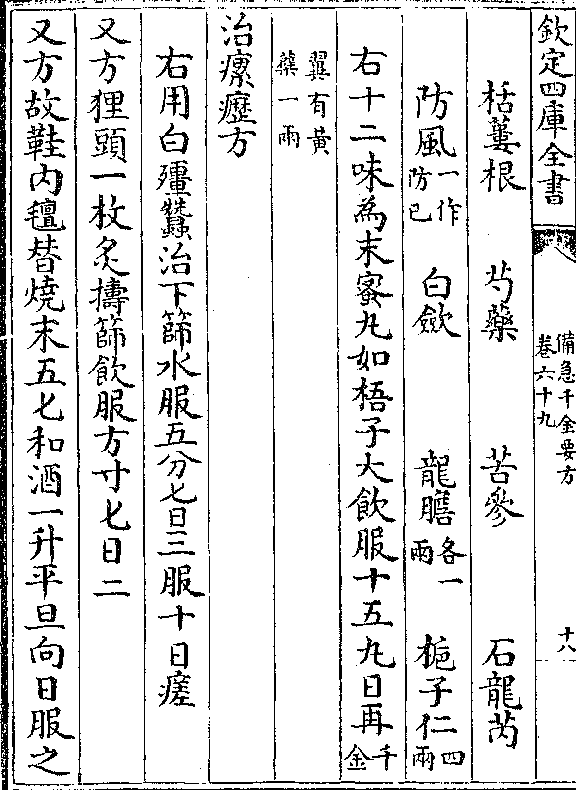 欽定四庫全書
備急千金要方
卷六十九
十八
栝蔞根 芍藥 苦參 石龍芮
防風一作防已 白歛 龍膽各一兩 梔子仁四兩
右十二味為末蜜丸如梧子大飲服十五丸日再千金
翼有黃
蘗一兩
治瘰癧方
右用白殭蠶治下篩水服五分匕日三服十日瘥
又方狸頭一枚炙擣篩飲服方寸匕日二
又方故鞋內氊替燒末五匕和酒一升平旦向日服之